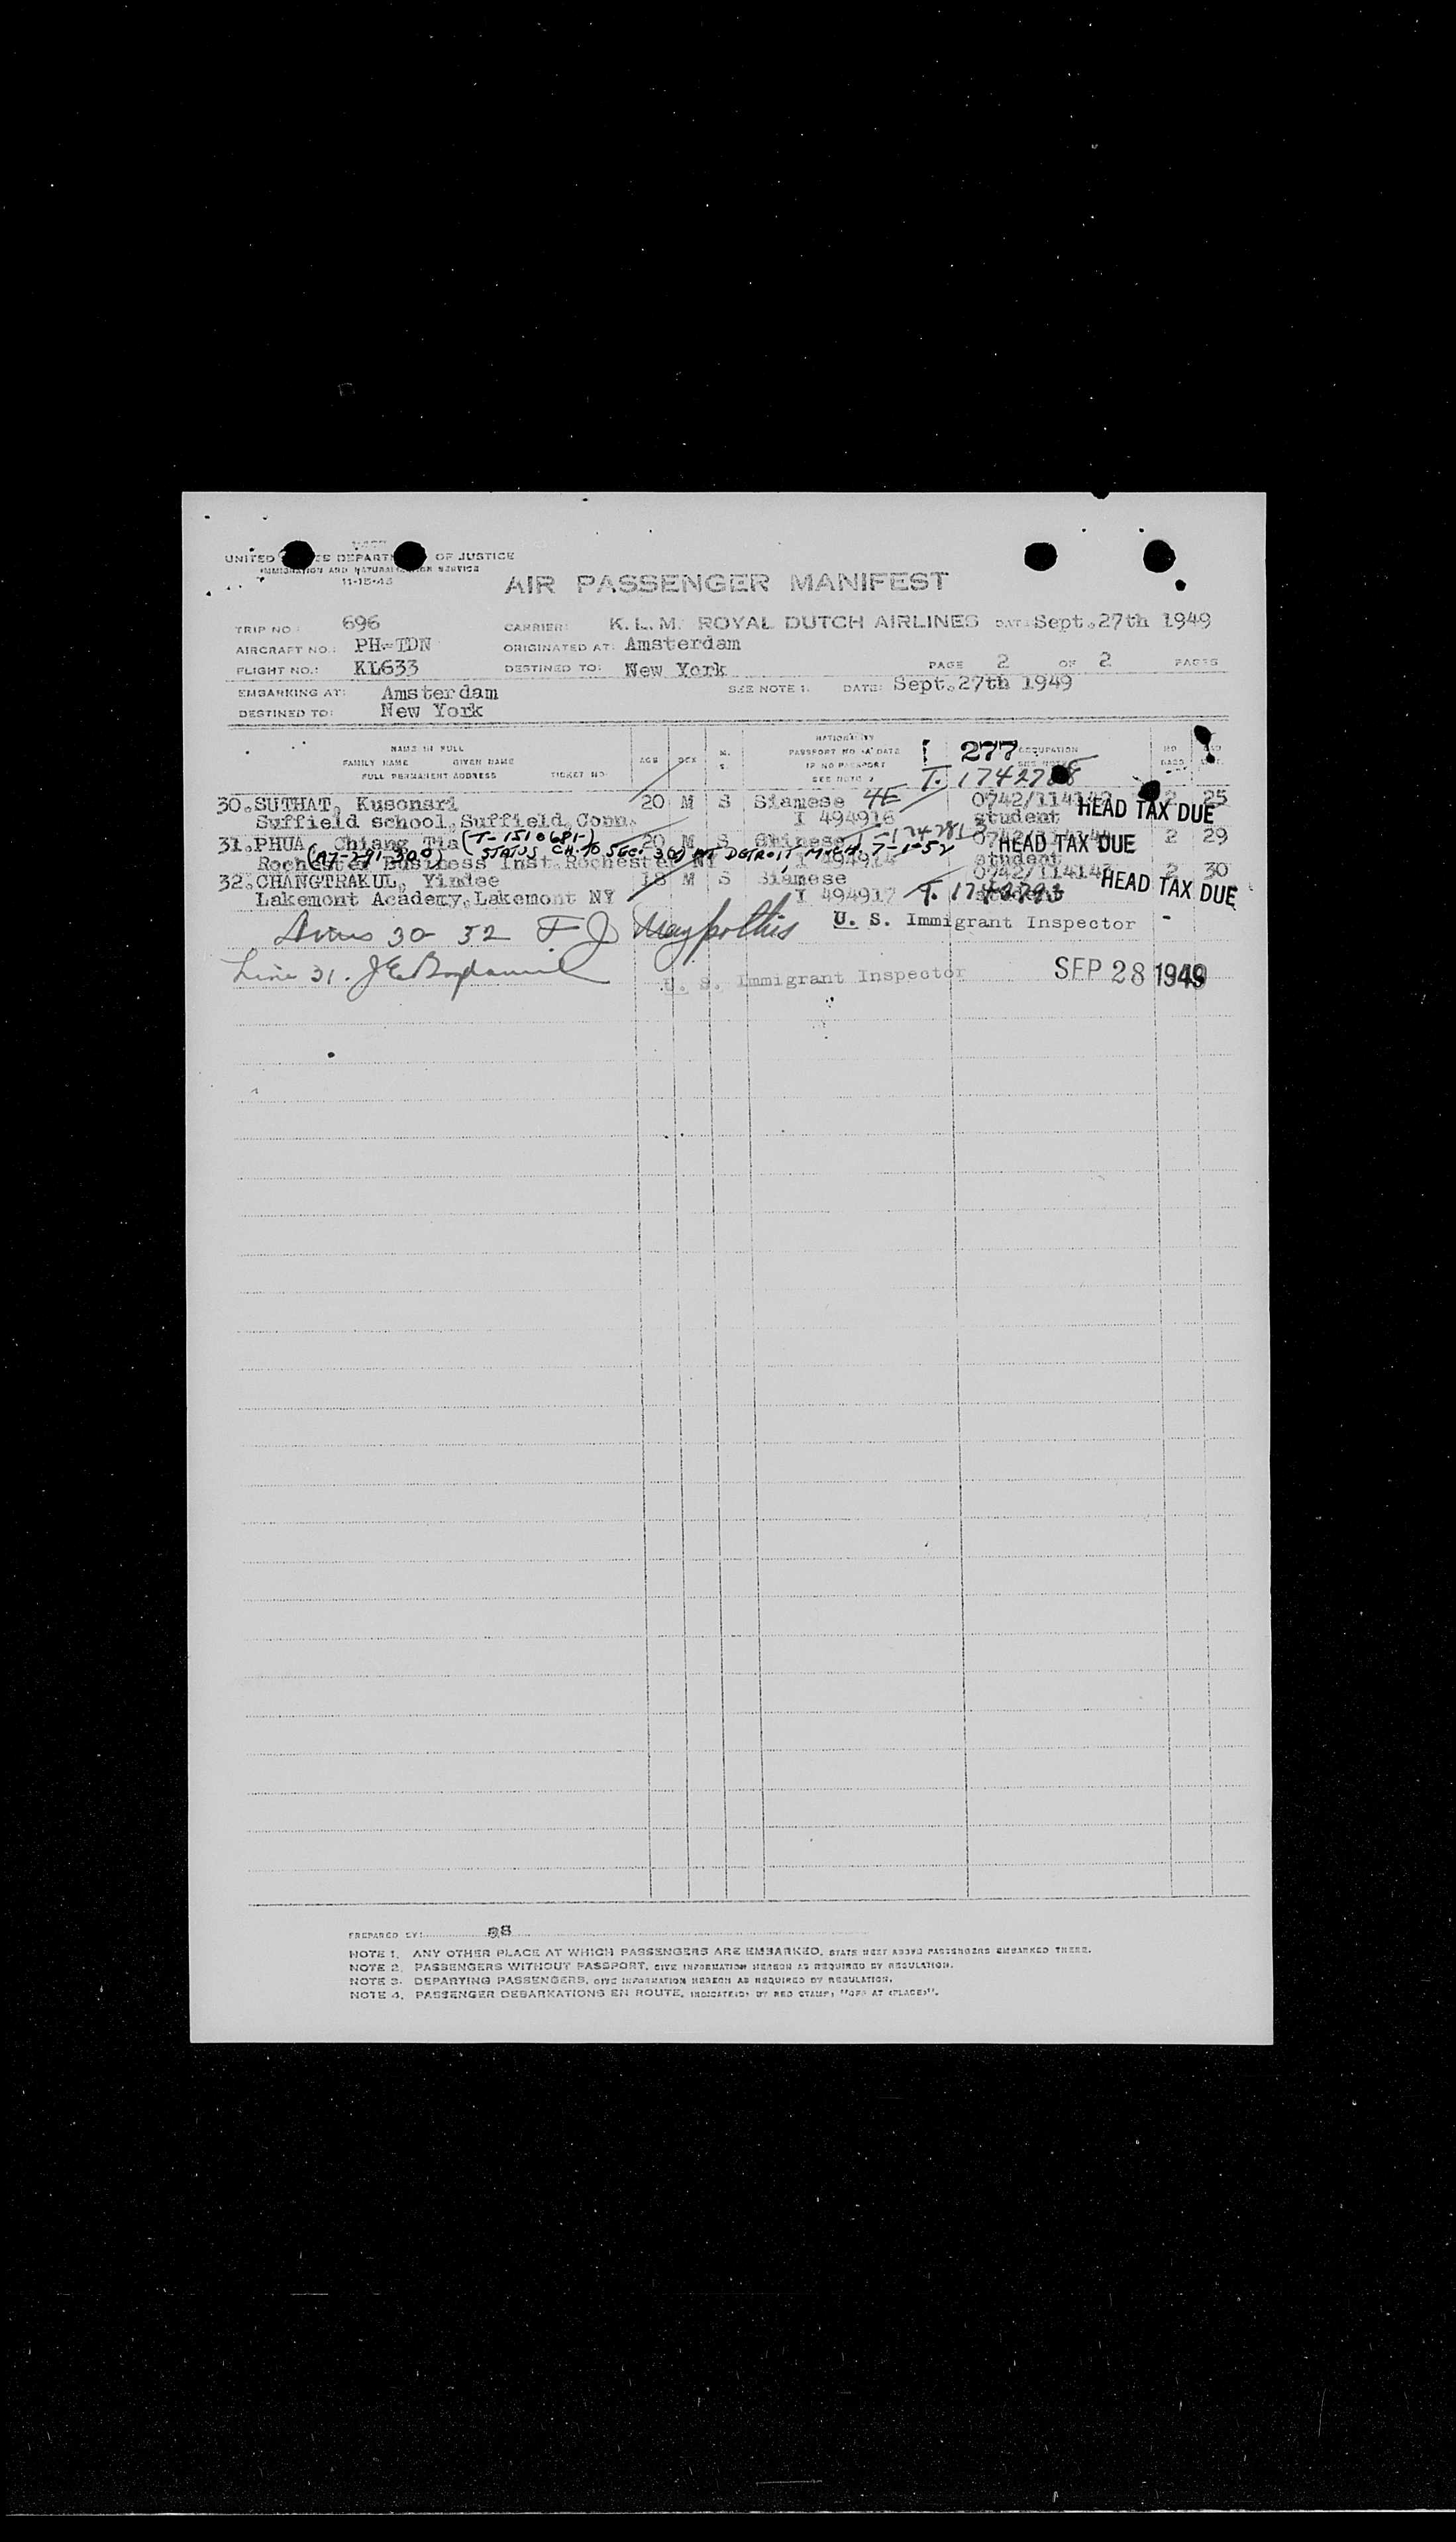 UNITED DEPART OF JUSTICE
IMMIGRATION AND NATURALIZATION SERVICE
11-15-45
AIR PASSENGER MANIFEST
TRIP NO: 696 CARRIER: K.L.M. ROYAL DUTCH AIRLINES DATE: Sept.27th 1949
AIRCRAFT NO.: PH-TDN ORIGINATED AT: Amsterdam
FLIGHT NO.: KL633 DESTINED TO: New York PAGE 2 OF 2 PAGES
EMBARKING AT: Amsterdam SEE NOTE 1. DATE: Sept.27th 1949
DESTINED TO: New York
NAME IN FULL
FAMILY NAME GIVEN NAME
FULL PERMANENT ADDRESS TICKET NO.
AGE SEX M. S.
NATIONALITY
PASSPORT NO. & DATE
IF NO PASSPORT
SEE NOTE 2
277 OCCUPATION
SEE NOTE
30. SUTHAT, Kusonsri 20 M S Siamese 4E 2 25
Suffield school, Suffield, Conn. I 494916 student HEAD TAX DUE
31. PHUA, Chiang Tia (T-1510681-) 20 M S Chinese HEAD TAX DUE 2 29
(A7-291-300) STATUS CH. TO SEC. AT DETROIT, MICH. 7-1-52
Rochester Business Inst. Rochester NY I 494914 student
32. CHANGTRAKUL, Yindee 18 M S Siamese HEAD TAX DUE 2 30
Lakemont Academy, Lakemont NY I 494917 T. 1742793
30-32 F J U. S. Immigrant Inspector -
Line 31. U. S. Immigrant Inspector SEP 28 1949
PREPARED BY:
NOTE 1. ANY OTHER PLACE AT WHICH PASSENGERS ARE EMBARKED, STATE NEXT ABOVE PASSENGERS EMBARKED THERE.
NOTE 2. PASSENGERS WITHOUT PASSPORT, GIVE INFORMATION HEREON AS REQUIRED BY REGULATION.
NOTE 3. DEPARTING PASSENGERS, GIVE INFORMATION HEREON AS REQUIRED BY REGULATION.
NOTE 4. PASSENGER DEBARKATIONS EN ROUTE, INDICATE(D) BY RED STAMP; "OFF AT (PLACE)".